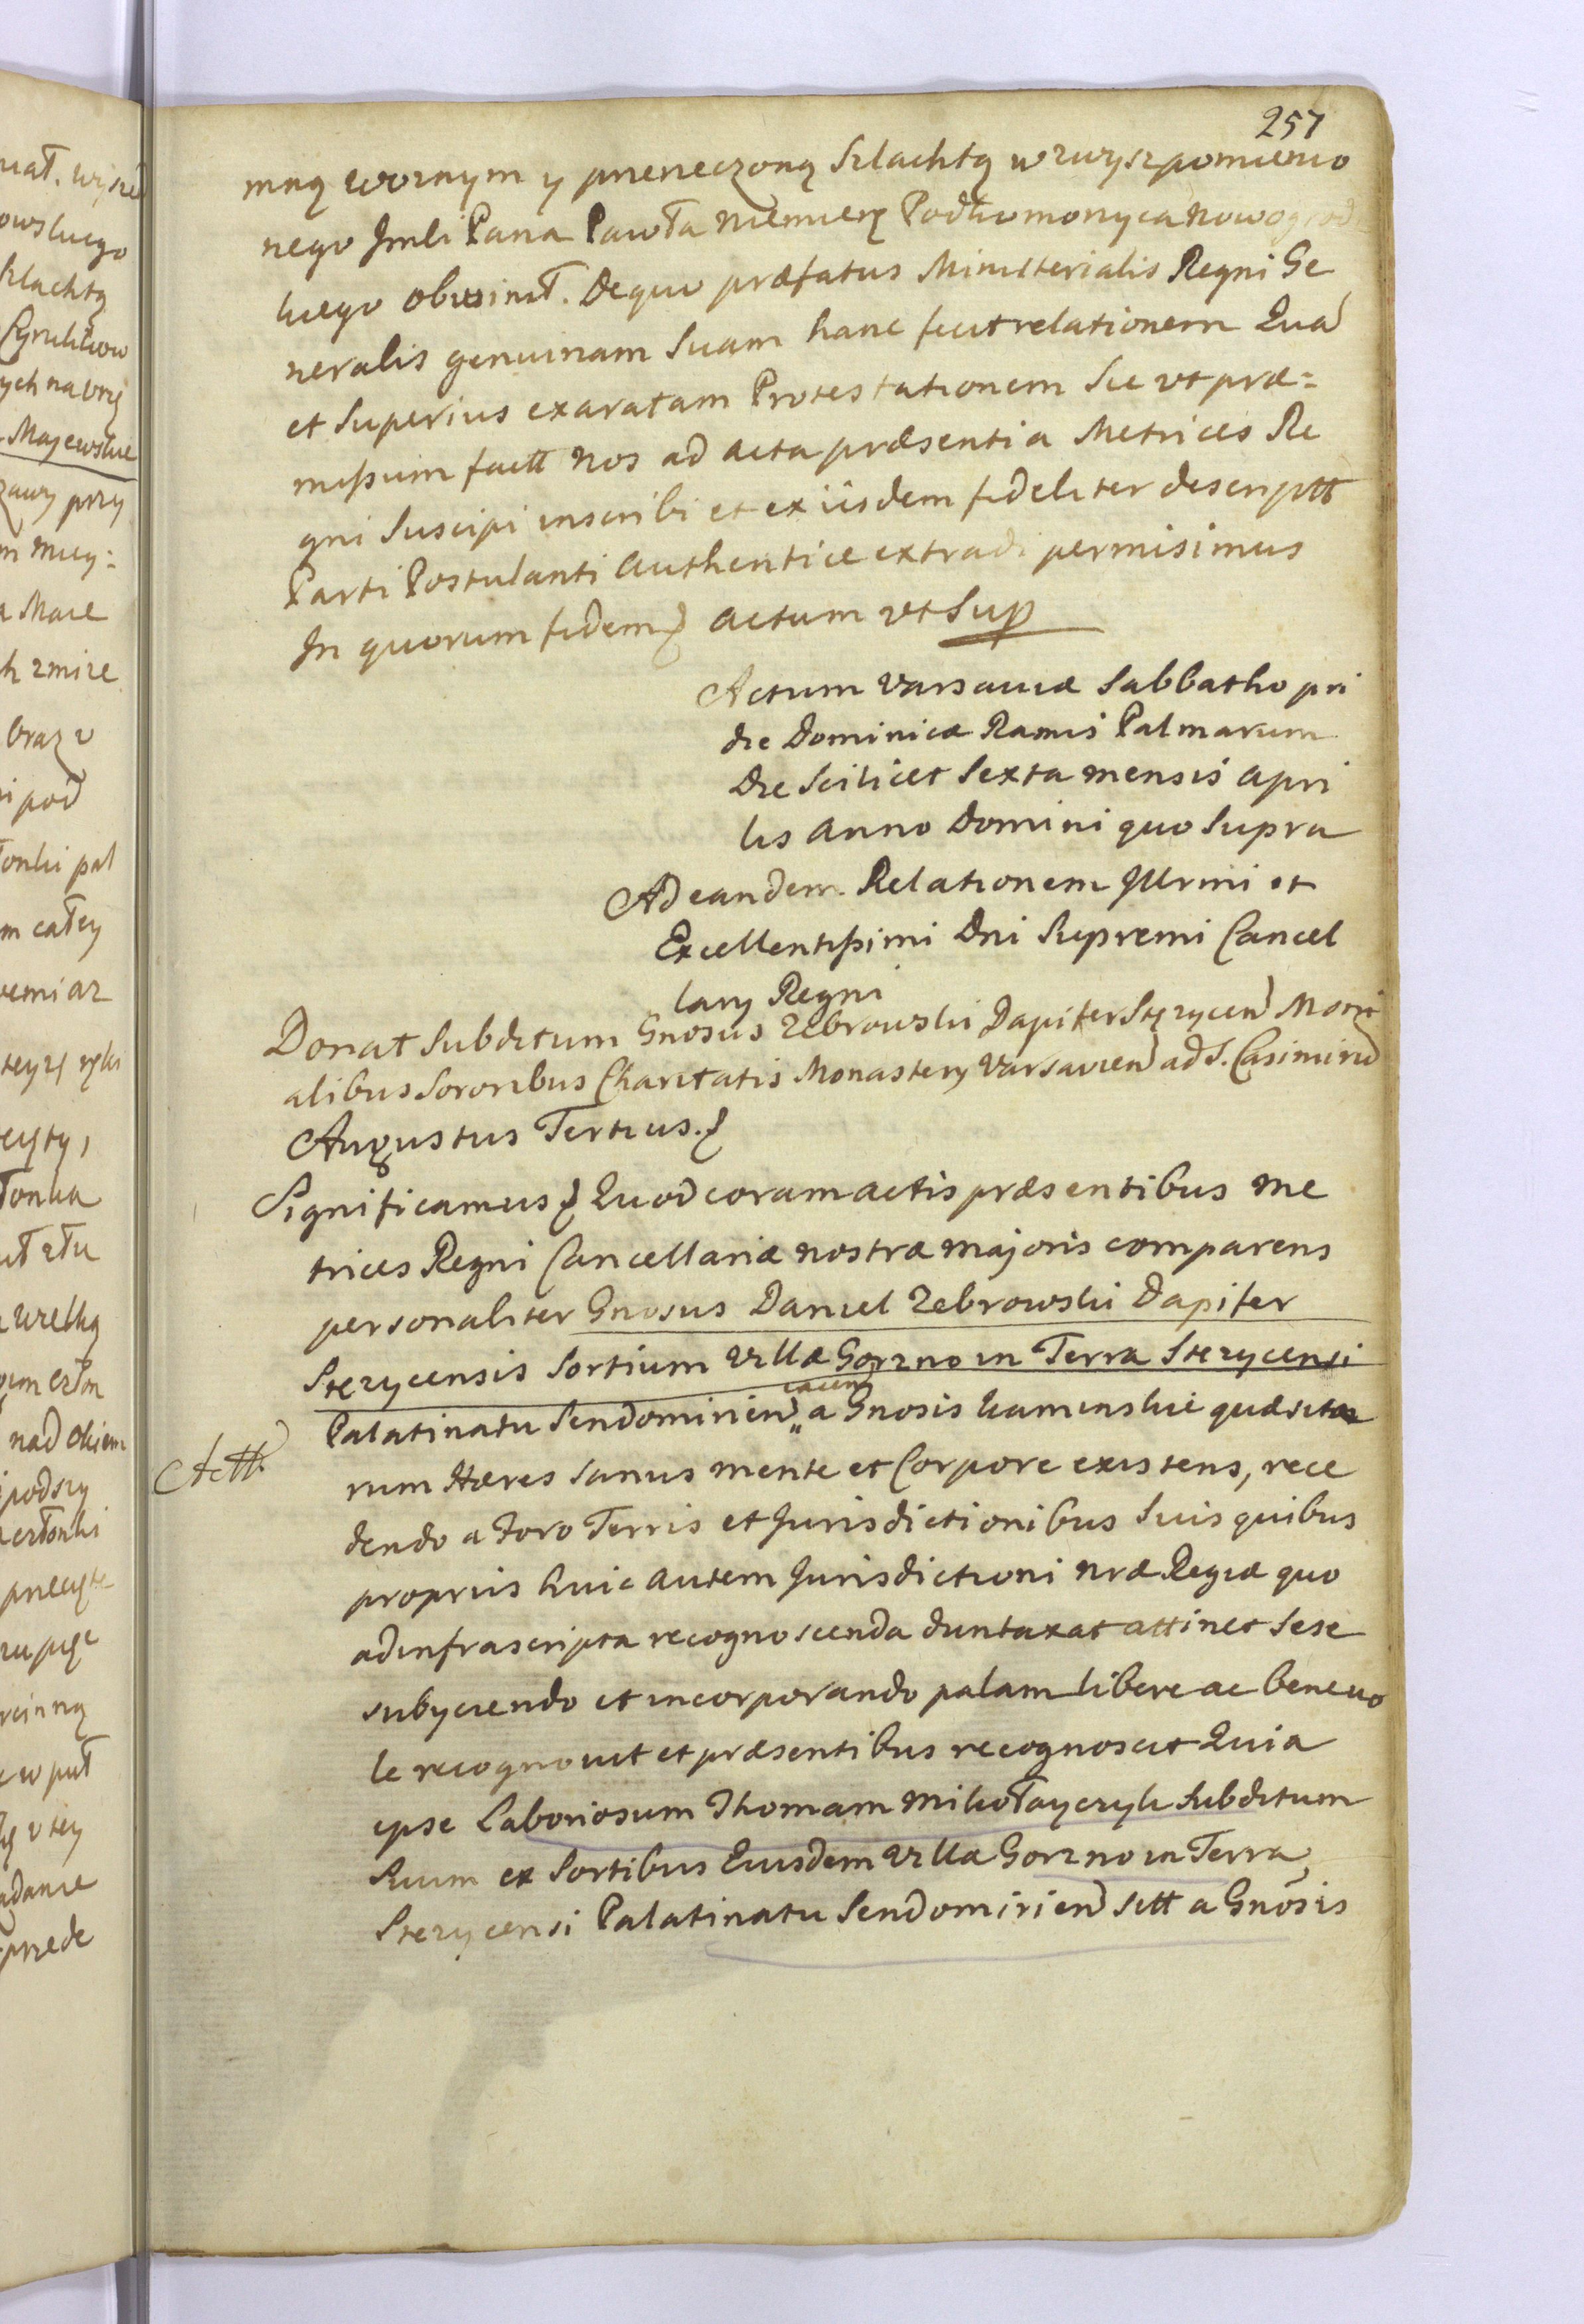 257
mną woznym y przerzeczoną Szlachtą wzwyszpomienio
nego Jmści Pana Pawła Niemierę Podkomorzyca nowogrodz
kiego obwinił. De quo præfatus Ministerialis Regni Ge
neralis genuinam Suam hanc fecit relationem Qua
et Superius exaratam Protestationem Sic ut præ=
missum factt nos ad acta præsentia Metrices Re
gni Suscipi inscribi et ex iisdem fideliter descriptt
Parti Postulanti Authentice extradi permisimus
In quorum fidem actum ut Sup
Actum Varsaviæ Sabbatho pri
die Dominicæ Ramis Palmarum
Die Scilicet Sexta mensis Apri
lis Anno Domini quo Supra
Ad eandem Relationem Jllrmi et
Excellentissimi Dni Supremi Cancel
lary Regni
Donat Subditum Gnosus Zebrowski Dapifer Stęzycen Moni
alibus Sororibus Charitatis Monastery Varsavien ad S. Casimirū
Augustus Tertius.
Significamus Quod coram actis præsentibus me
trices Regni Cancellariæ nostræ majoris comparens
personaliter Gnosus Daniel Zebrowski Dapifer
Stezycensis Sortium Villæ Gorzno in Terra Stezycensi
Palatinatu Sendomirien jacen a Gnosis Kaminskie quæsita
Actt.
rum Hæres Sanus mente et Corpore existens, rece
dendo a Foro Terris et Jurisdictionibus Suis quibus
propriis huic autem Jurisdictioni nræ Regiæ quo
ad infrascripta recognoscenda duntaxat attinet Sese
subyciendo et incorporando palam libere ac benevo
le recognovit et præsentibus recognoscit Quia
ipse Laboriosum Thomam Mikołayczyk Subditum
Suum ex Sortibus Eiusdem Villa Gorzno in Terra
Stezycensi Palatinatu Sendomirien sitt a Gnosis